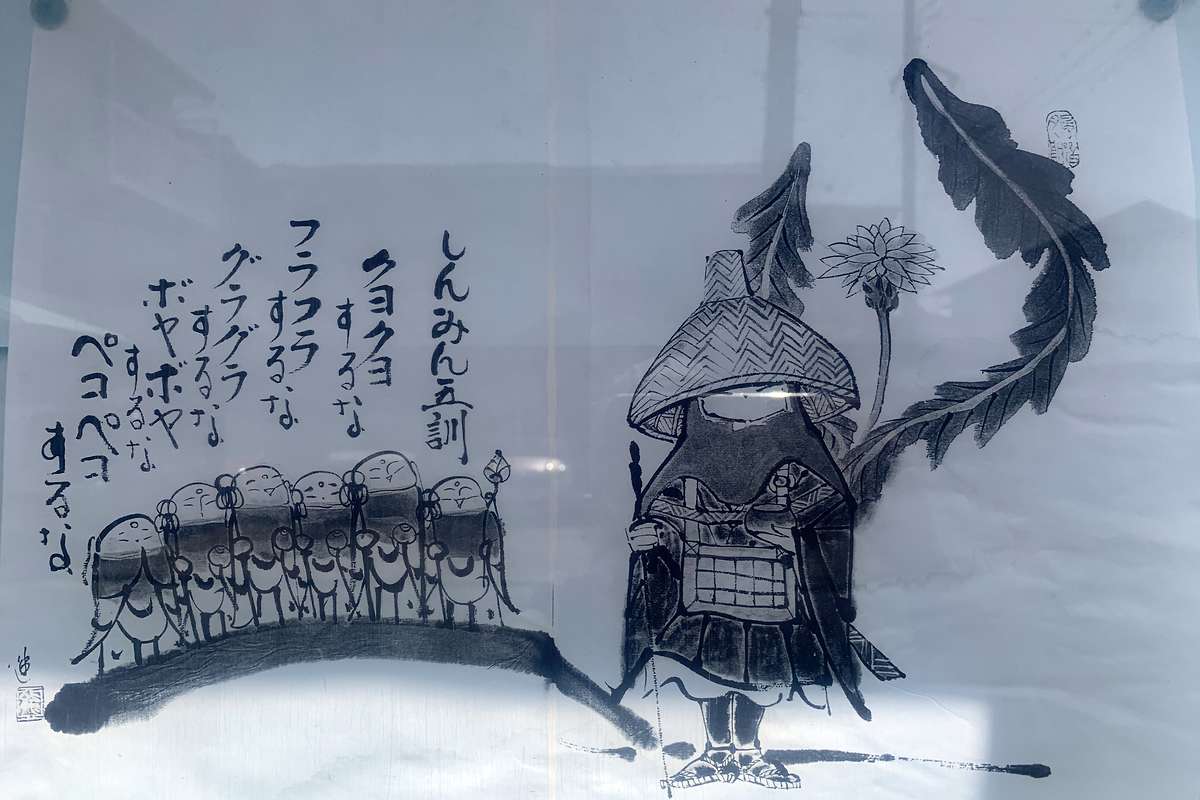 しんみん五訓
クヨクヨ
するな
フラフラ
するな
グラグラ
するな
ボヤボヤ
するな
ペコペコ
するな